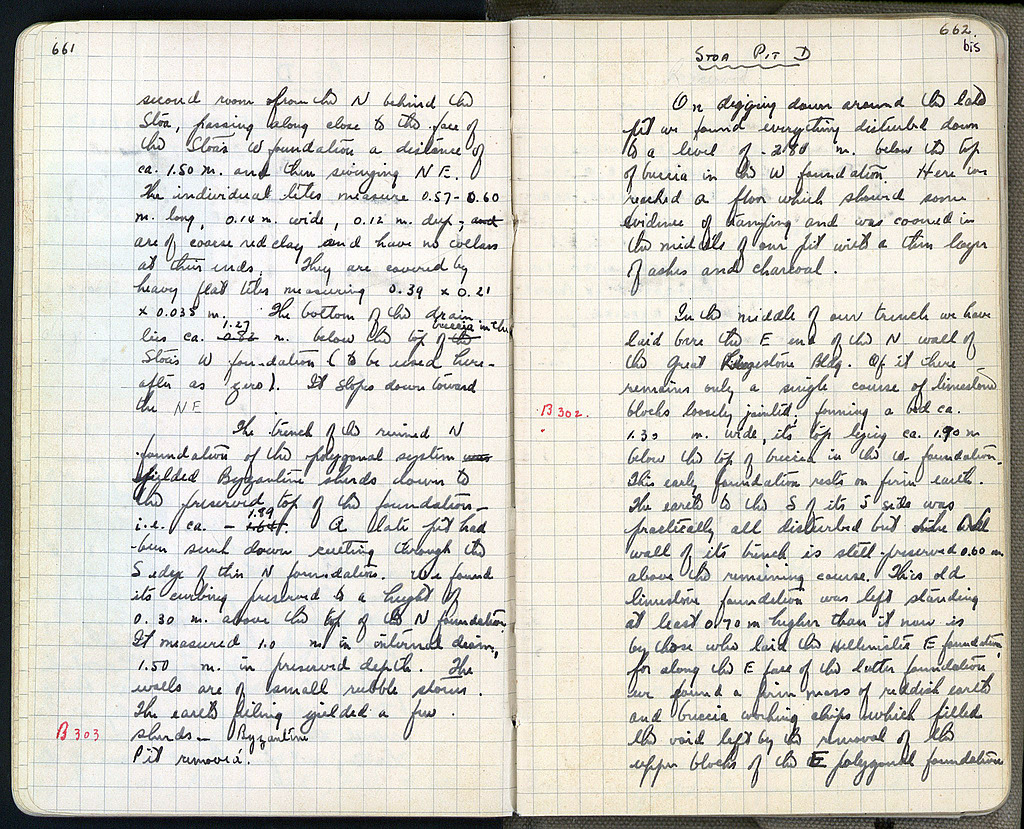 661
second room from the N behind the
Stoa, passing along close to the face of
the Stoa's W foundation a distance of
ca. 1.50 m. and then swinging NE.
The individual tiles measure 0.57-0.60
m. long, 0.14 m. wide, 0.12 m. deep, and
are of coarse red clay and have no collars
at their ends. They are covered by
heavy flat tiles measuring 0.39 x 0.21
x 0.035 m. The bottom of the drain
1.27 breccia in the
lies ca. 0.82 m. below the top of the
Stoa's W foundation (to be used here-
after as zero). It slopes down toward
the NE
The trench of the ruined N
foundation of the polygonal system was
yielded Byzantine sherds down to
the preserved top of the foundation
1.89
i.e. ca. - A late pit had
been sunk down cutting through the
S edge of this N foundation. We found
its curbing preserved to a height of
0.30 m. above the top of the N foundation.
It measured 1.0 m in internal diam,
1.50 m. in preserved depth. The
walls are of small rubble stones.
The earth filling yielded a few
B 303
sherds - Byzantine
Pit removed.
662
bis
STOA PIT D
On digging down around the late
pit we found everything disturbed down
to a level of -2.80 m. below the top
of breccia in the W foundation Here we
reached a floor which showed some
evidence of tamping and was covered in
the middle of our pit with a thin layer
of ashes and charcoal.
In the middle of our trench we have
laid bare the E end of the N wall of
the Great Bldg. Of it there
remains only a single course of limestone
B 302.
blocks loosely jointed, forming a bed ca.
1.30 m. wide, its top lying ca. 1.90 m
below the top of breccia in the W foundation.
This early foundation rests on firm earth.
The earth to the S of its S side was
practically all disturbed but the
wall of its trench is still preserved 0.60 m
above the remaining course. This old
limestone foundation was left standing
at least 0.70 m higher than it now is
by those who laid the Hellenistic E foundation,
for along the E face of the latter foundation
we found a firm mass of reddish earth
and breccia working chips which filled
the void left by the removal of the
upper blocks of the E polygonal foundation